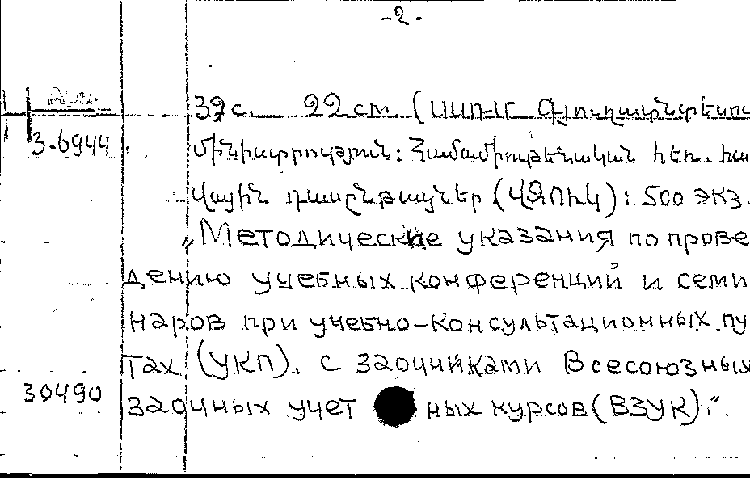 -2-
39 с. 22 см (ՍՍՌՄ Գյուղատնտեսու
3-6944
մինիստրություն: Համամիութենական հեռ. հա
վային դասընթացներ (ՎՁՈՒԿ): 500 экз.
„Методические указания по прове
дению учебных конференций и семи
наров при учебно-консультационных пу
тах (УКП). с заочниками Всесоюзных
30490
заочных учет ных курсов (ВЗУК)."